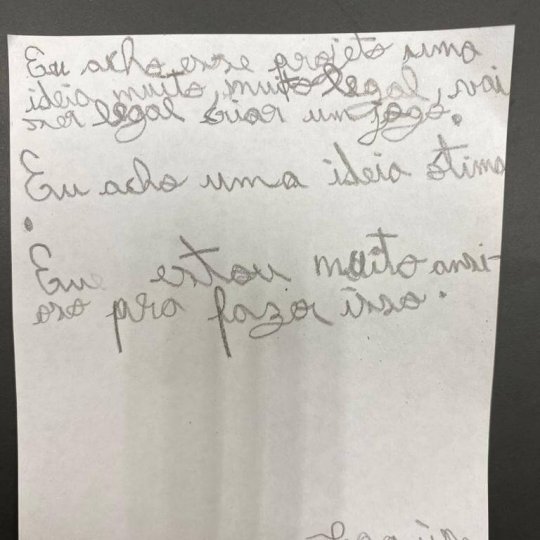 Eu acho esse projeto uma
ideia muito, muito legal, vai
ser legal criar um jogo.
Eu acho uma ideia ótima
.
Eu estou muito ansi-
oso pra fazer isso.